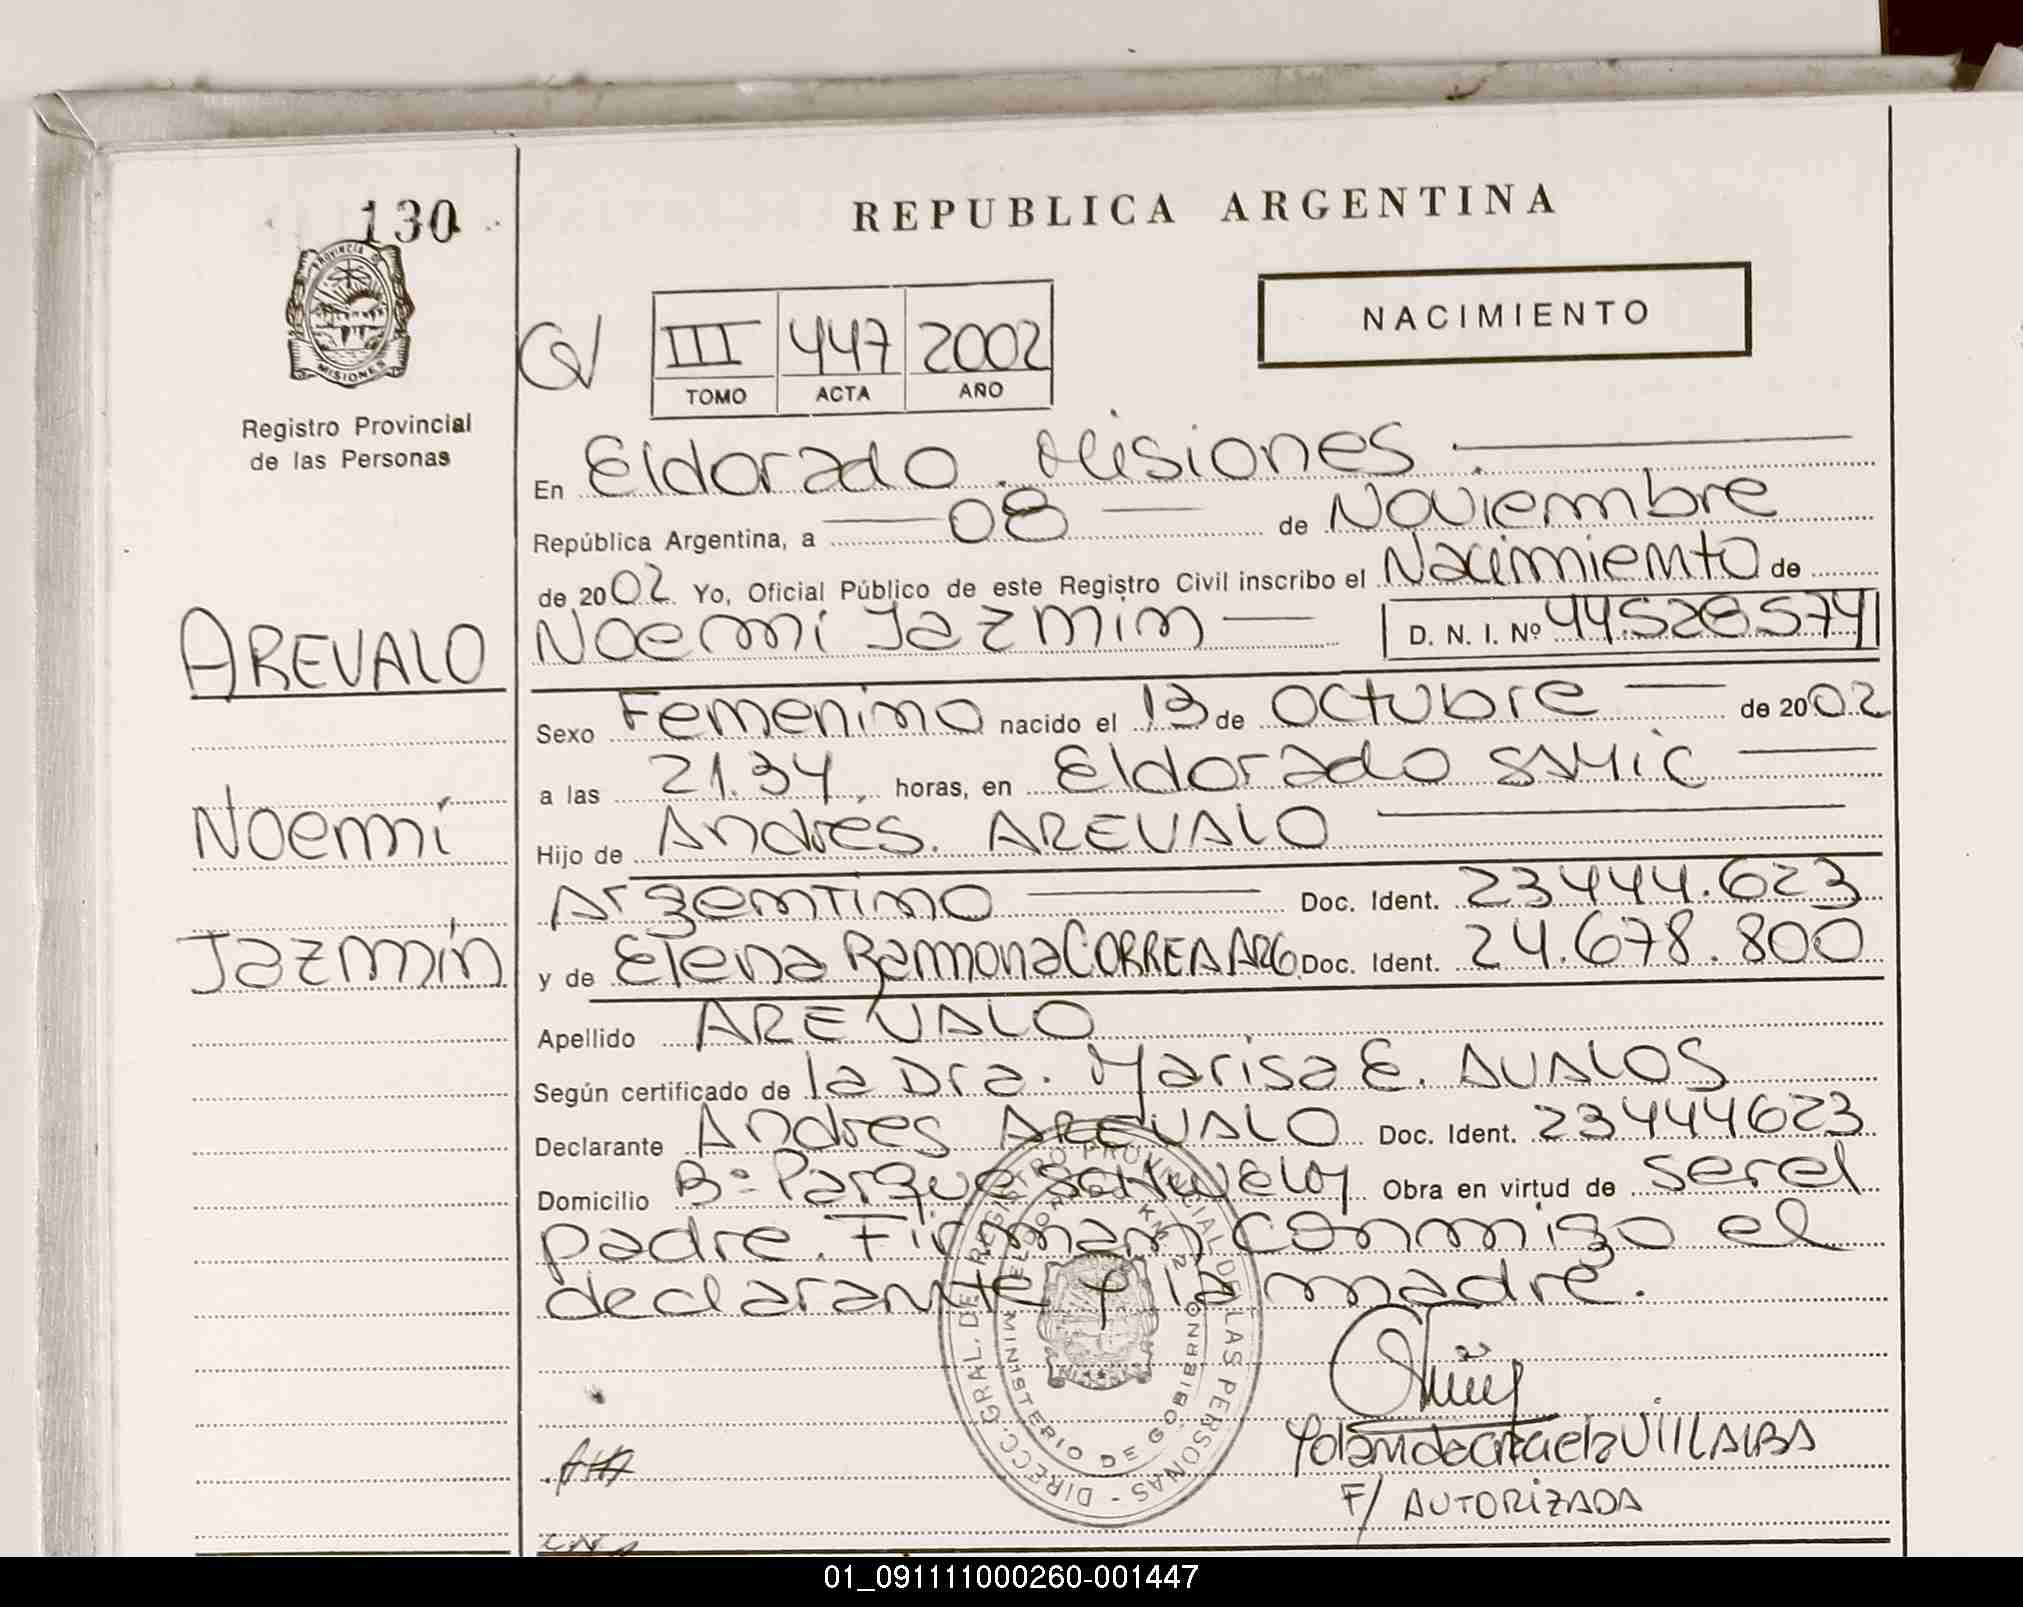 130
PROVINCIA DE
MISIONES
Registro Provincial
de las Personas
AREVALO
Noemí
Jazmín
REPUBLICA ARGENTINA
NACIMIENTO
III 447 2002
TOMO ACTA AÑO
En Eldorado. Misiones.
República Argentina, a 08 de Noviembre
de 2002 Yo, Oficial Público de este Registro Civil inscribo el Nacimiento de
Noemí Jazmín D. N. I. Nº 44.528.574
Sexo Femenino nacido el 13 de Octubre de 2002
a las 21.34, horas, en Eldorado SAMIC
Hijo de Andres. AREVALO
Argentino Doc. Ident. 23444.623
y de Elena Ramona CORREA ARG. Doc. Ident. 24.678.800
Apellido AREVALO
Según certificado de la Dra. Marisa E. AVALOS
Declarante Andres AREVALO Doc. Ident. 23444623
Domicilio Bº Parque SCHWELM Obra en virtud de ser el
padre. Firman conmigo el
declarante y la madre.
DIRECC. GRAL. DE REGISTRO PROVINCIAL DE LAS PERSONAS -
MINISTERIO DE GOBIERNO
Yolanda Graciela VILLALBA
F/ AUTORIZADA
01_091111000260-001447